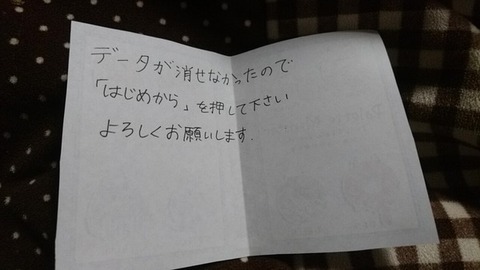 データが消せなかったので
「はじめから」を押して下さい
よろしくお願いします.